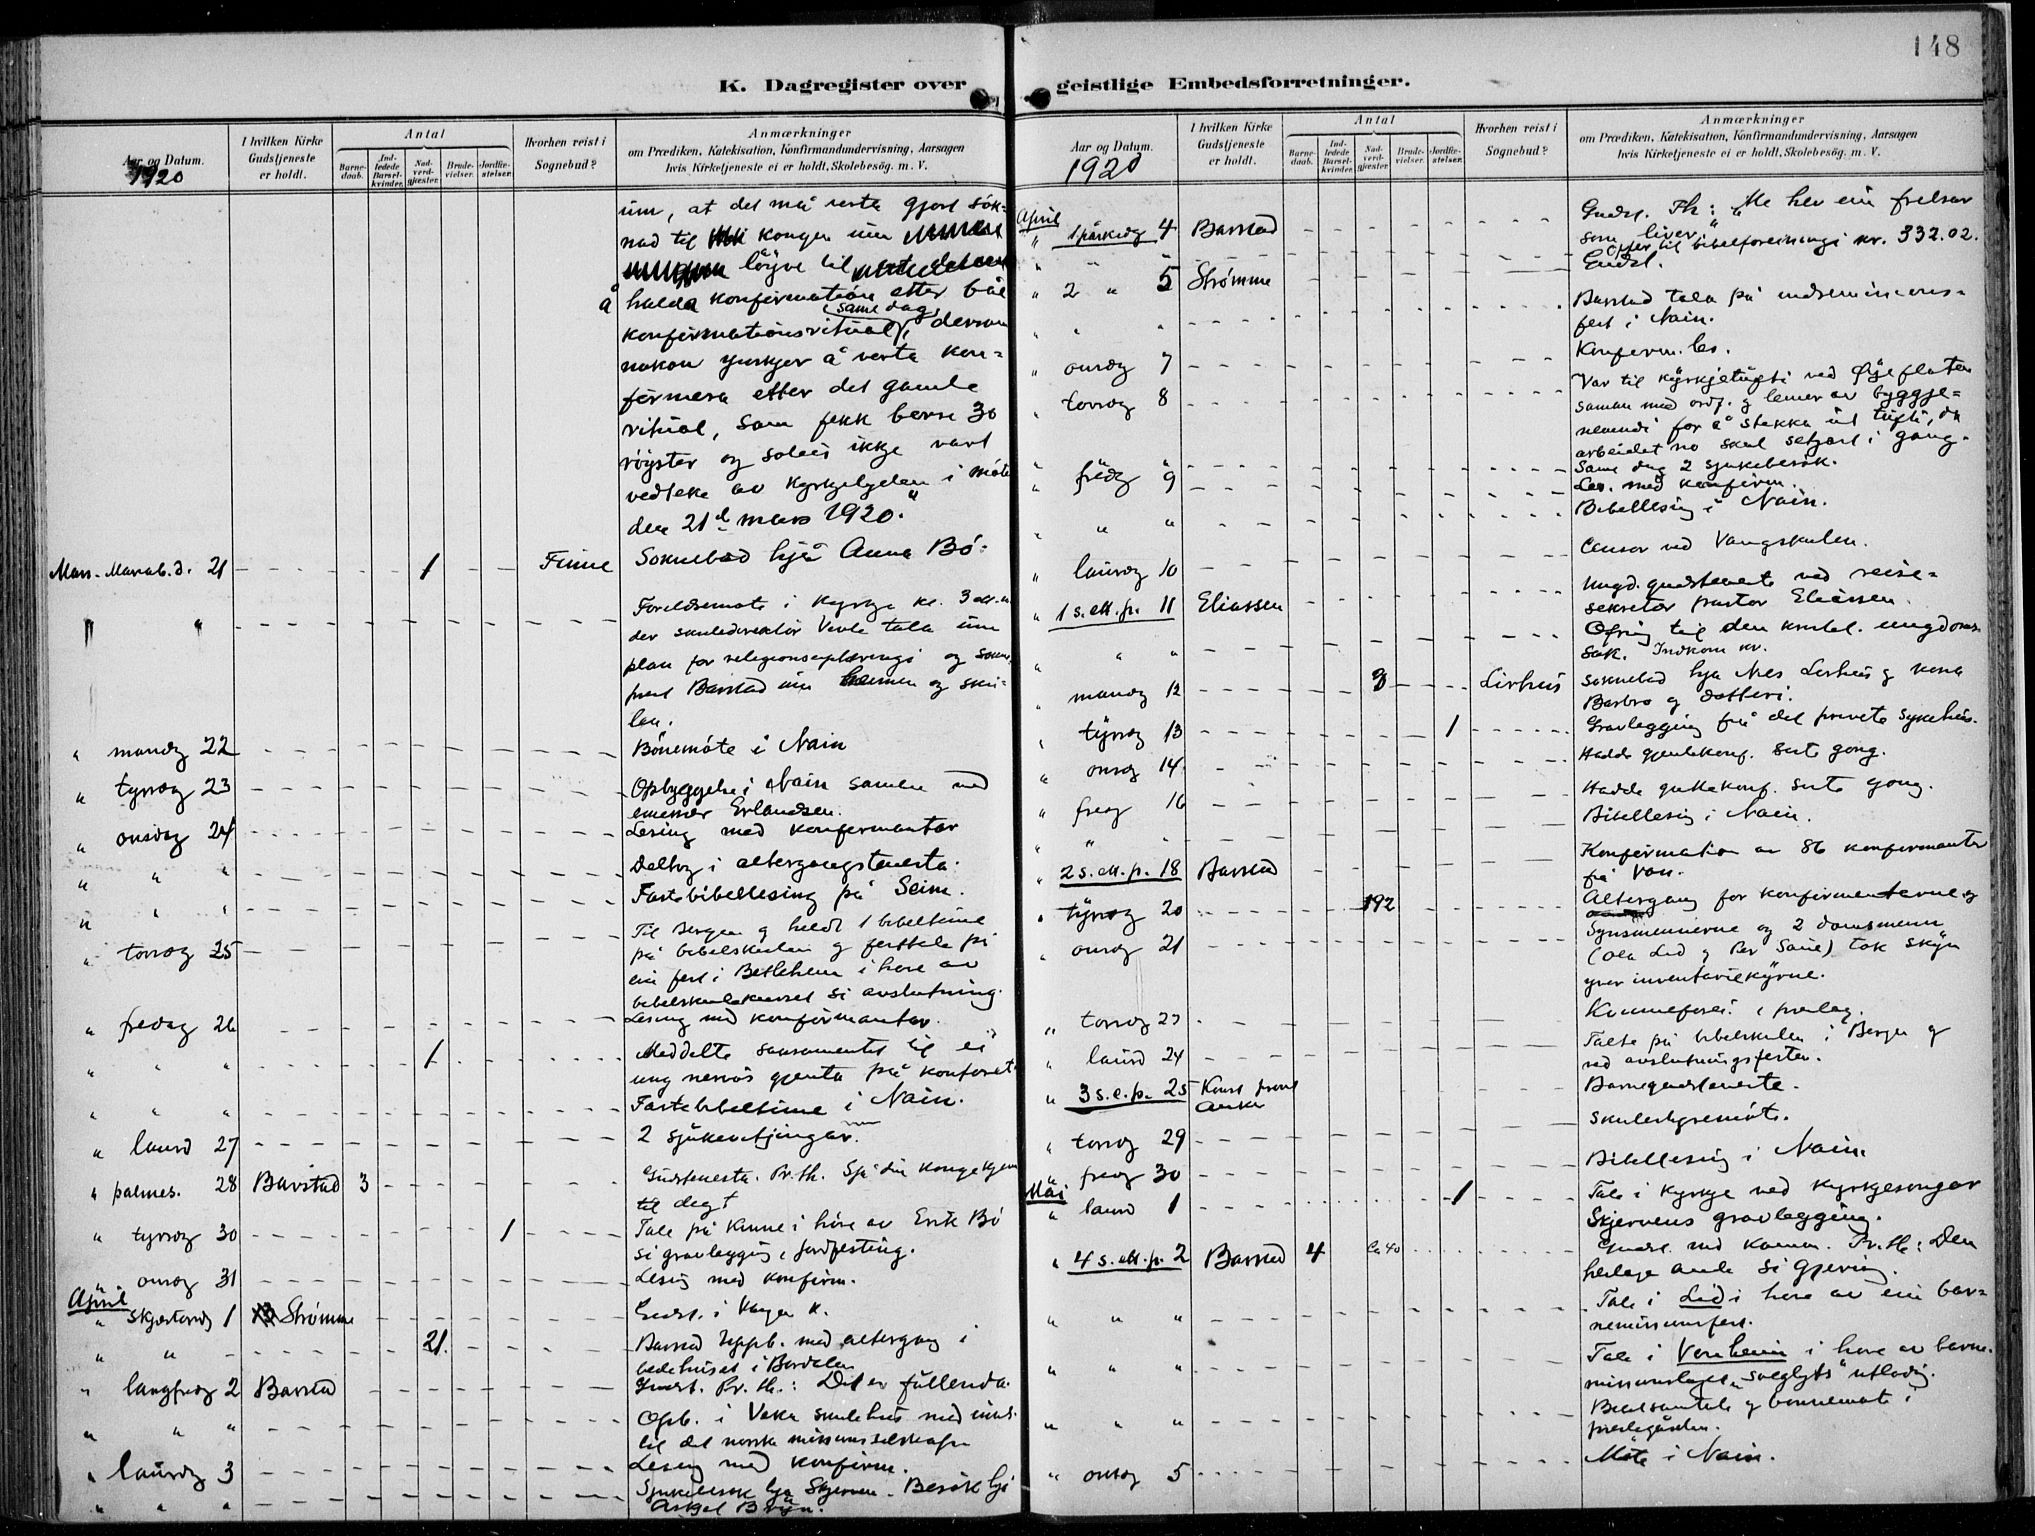 148
K. Dagregister over
Aar og Datum.
1920
I hvilken Kirke Gudstjeneste er holdt.
Antal
Barnedaab.
Indledede Barselkvinder.
Nadverdgjester.
Brudevielser.
Jordfæstelser.
Hvorhen reist i Sognebud?
Anmærkninger
om Prædiken, Katekisation, Konfirmandundervisning, Aarsagen
hvis Kirketjeneste ei er holdt, Skolebesög. m. V.
um, at det må verta gjort sök-
nad til kongen um
löyve til
å halda konfirmation etter båe
konfirmationsritual same dag, dersom
nokon ynskjer å verta kon-
firmera etter det gamle
ritual, som fekk berre 30
röyster og soleis ikkje vart
vedteke av kyrkjelyden i möte
den 21de mars 1920."
Mars. Mariab.d. 21 1 Finne Soknebod hjå Anna Bö.
" " Foreldremöte i kyrkja kl. 3 em.
der skuledirektör Vevle tala um
plan for religionsuplæringi og sokne-
prest Barstad um heimen og sku-
len.
" mandg 22 Bönemöte i Nain
" tyrsdg 23 Opbyggelse i Nain saman med
emissær Erlandsen.
" onsdag 24 Lesing med konfirmantar
" " " Deltog i altergangstenesta.
" " " Fastebibellesing på Seim.
" torsdg 25 Til Bergen og heldt 1 bibeltime
på bibelskulen og festtale på
ein fest i Betlehem i höve av
bibelskulekurset si avslutning.
" fredag 26 Lesing med konfirmantar.
" " " 1 Meddelte sakramentet til ei
ung nervös gjenta på kontoret
" " " Fastebibeltime i Nain.
" laurd 27 2 sjukevitjingar.
" palmes. 28 Barstad 3 Gudstenesta. Pr.th. Sjå din konge kjem
til deg!
" tyrsdg 30 1 Tale på Kinne i höve av Eirik Bö
si gravlegging, jordfesting.
" onsdg 31 Lesing med konfirm.
April
" Skjærtorsdg 1 Strömme Gudst. i Vangen k.
" " 21. Barstad Uppb. med altergang i
bedehuset i Bordalen
" langfredg 2 Barstad Gudst. Pr. th.: Det er fullenda.
" " " Opb. i Veka skulehus med inns.
til det norske misjonsselskapet
" laurdg 3 Lesing med konfirm.
" " " Sjukebesök hjå Skjerven. Besök hjå
geistlige Embedsforretninger.
Aar og Datum.
1920
I hvilken Kirke Gudstjeneste er holdt.
Antal
Barnedaab.
Indledede Barselkvinder.
Nadverdgjester.
Brudevielser.
Jordfæstelser.
Hvorhen reist i Sognebud?
Anmærkninger
om Prædiken, Katekisation, Konfirmandundervisning, Aarsagen
hvis Kirketjeneste ei er holdt, Skolebesög. m. V.
April
" 1 påskedg 4 Barstad Gudst. Th: "Me hev ein frelsar
som liver"
Offer til bibelforeiningi kr. 332.02.
" 2 " 5 Strömme Gudst.
" " " Barstad tala på indremisjons-
fest i Nain.
" onsdg 7 Konfirm. les.
" torsdg 8 Var til kyrkjetufti ved Öyeflaten
saman med ordf. og lemer av byggje-
nemndi for å stakka ut tufti, då
arbeidet no skal setjast i gang.
Same dag 2 sjukebesök.
" fredg 9 Les. med konfirm.
" " " Bibellesing i Nain.
" laurdg 10 Censor ved Vangskulen.
" 1 s. ett. p. 11 Eliassen Ungd. gudsteneste ved reise-
sekretær pastor Eliassen.
" " " Ofring til den kristel. ungdoms-
sak. Indkom kr.
" mandg 12 3 Lirhus Soknebod hjå Nils Lirhus og kona
Barbro og dotteri.
" tyrsdg 13 1 Gravlegging frå det private sjukehus.
" onsdg 14 Hadde gjentekonf. siste gong.
" fredg 16 Hadde guttekonf. siste gong.
" " " Bibellesing i Nain.
" 2 s. ett. p. 18 Barstad Konfirmation av 86 konfirmantar
frå Voss.
" tyrsdg 20 192 Altergang for konfirmantarne og
" onsdg 21 Synsmennerne og 2 domsmenn
(Ola Lid og Per Saue) tok skjyn
yver inventariekyrne.
" torsdg 23 Kvinneforei. i presteg.
" laurd 24 Talte på bibelskulen i Bergen og
ved avslutningsfesten.
" 3 s. e. p. 25 Knut Barnegudsteneste.
" torsdg 29 Skulestyremöte.
" fredg 30 Bibellesing i Nain
Mai
" laurd 1 1 Tale i kyrkja ved kyrkjesongar
Skjervens gravlegging.
" 4 s. ett. p. 2 Barstad 4 Ca 40 Gudst. med komm. Pr. th: Den
heilage ande si gjerning.
" " " Tale i Lid i höve av ein bar-
nemisjonsfest.
" " " Tale i Voreheim i höve av barne-
misjonslaget "Solglytt" utlodn.
" " " Bibelsamtale og bönnemöte i
prestegården.
" onsdg 5 Möte i Nain.